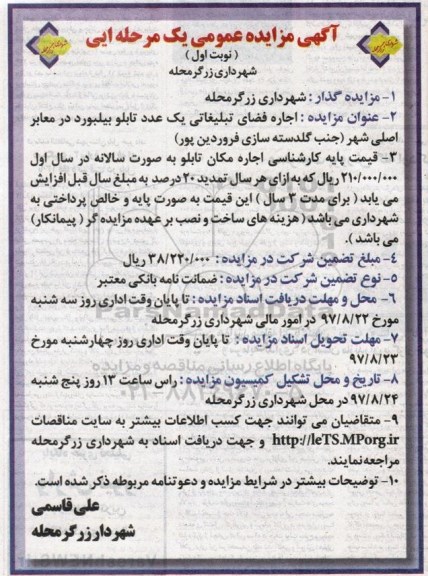 آگهی مزایده عمومی یک مرحله ایی
( نوبت اول )
شهرداری زرگرمحله
۱- مزایده گذار : شهرداری زرگرمحله
۲- عنوان مزایده : اجاره فضای تبلیغاتی یک عدد تابلو بیلبورد در معابر
اصلی شهر (جنب گلدسته سازی فروردین پور)
۳- قیمت پایه کارشناسی اجاره مکان تابلو به صورت سالانه در سال اول
۲۱۰/۰۰۰/۰۰۰ ریال که به ازای هر سال تمدید ۲۰ درصد به مبلغ سال قبل افزایش
می یابد ( برای مدت ۳ سال ) این قیمت به صورت پایه و خالص پرداختی به
شهرداری می باشد ( هزینه های ساخت و نصب بر عهده مزایده گر ( پیمانکار)
می باشد ).
۴- مبلغ تضمین شرکت در مزایده : ۳۸/۲۳۰/۰۰۰ ریال
۵- نوع تضمین شرکت در مزایده : ضمانت نامه بانکی معتبر
۶- محل و مهلت دریافت اسناد مزایده : تا پایان وقت اداری روز سه شنبه
مورخ ۹۷/۸/۲۲ در امور مالی شهرداری زرگرمحله
۷- مهلت تحویل اسناد مزایده : تا پایان وقت اداری روز چهارشنبه مورخ
۹۷/۸/۲۳
۸- تاریخ و محل تشکیل کمیسیون مزایده : راس ساعت ۱۳ روز پنج شنبه
۹۷/۸/۲۴ در محل شهرداری زرگرمحله
۹- متقاضیان می توانند جهت کسب اطلاعات بیشتر به سایت مناقصات
http://leTS.MPorg.ir و جهت دریافت اسناد به شهرداری زرگرمحله
مراجعه نمایند.
۱۰- توضیحات بیشتر در شرایط مزایده و دعوتنامه مربوطه ذکر شده است.
علی قاسمی
شهردار زرگرمحله